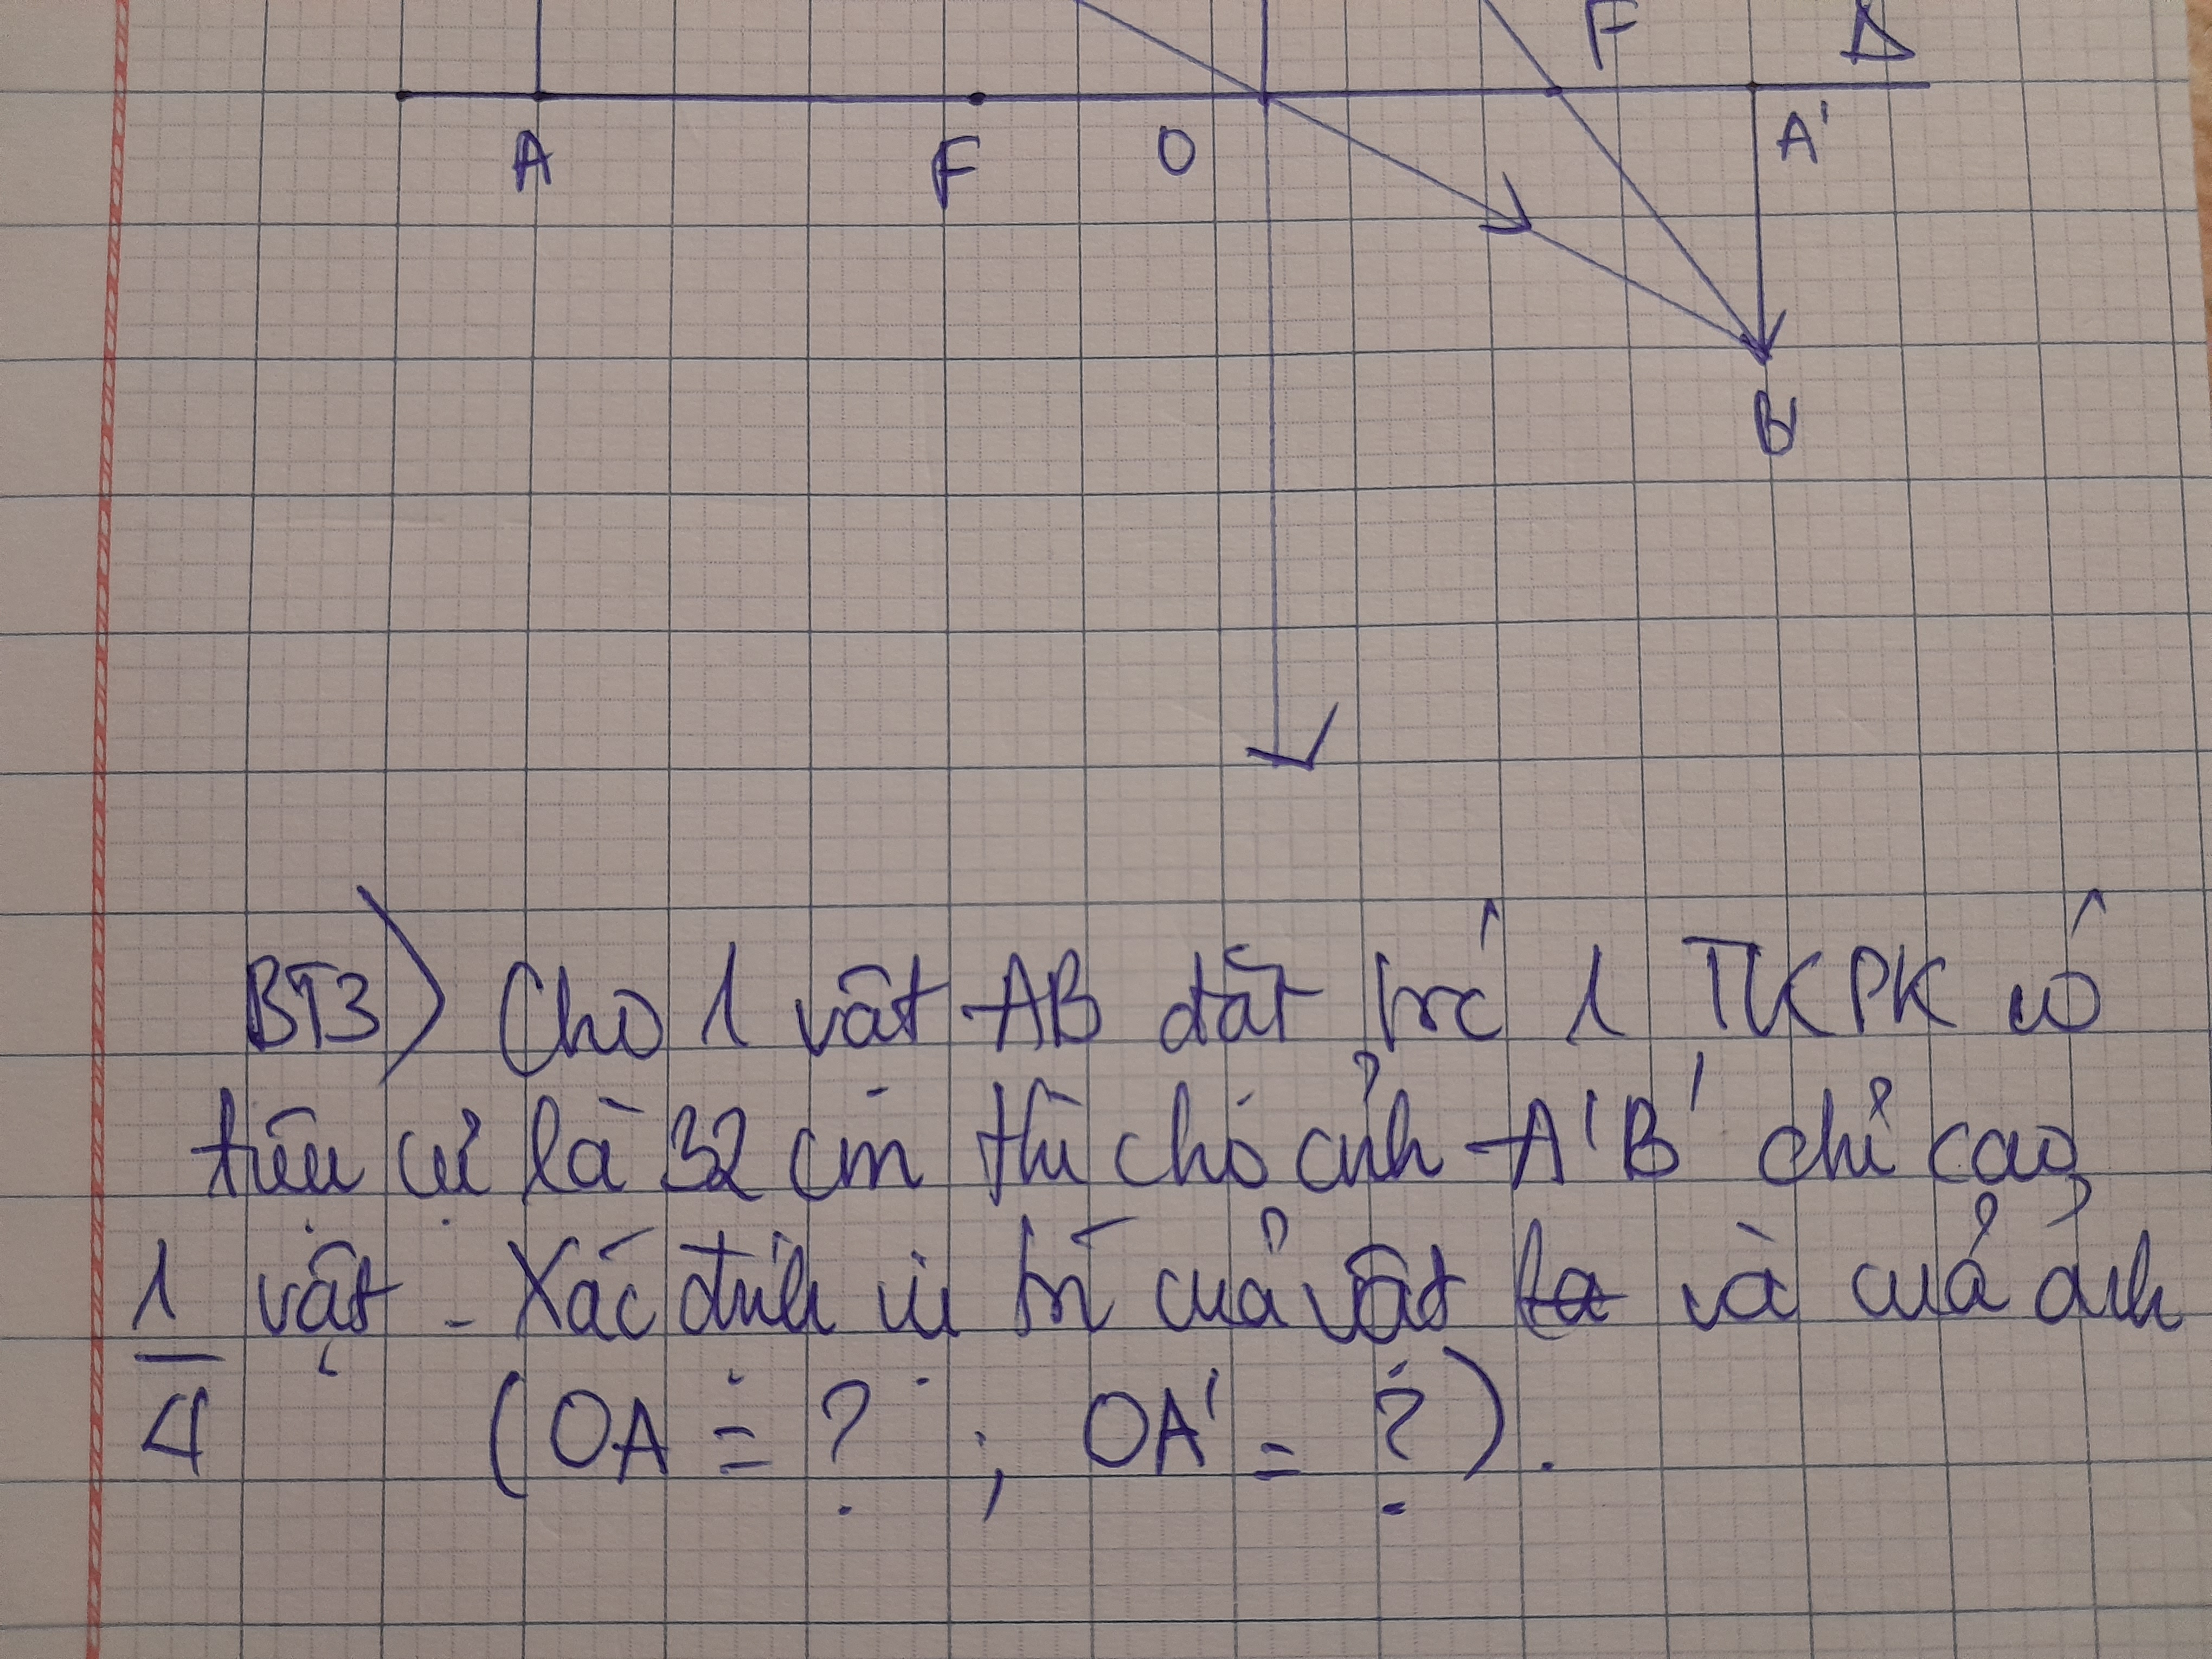 F Δ
A F O A'
B'
BT3) Cho 1 vật AB đặt trc' 1 TKPK có
tiêu cự là 32 cm thì cho ảnh A'B' chỉ cao
1/4 vật. Xác định vị trí của vật và của ảnh
(OA = ? ; OA' = ?).